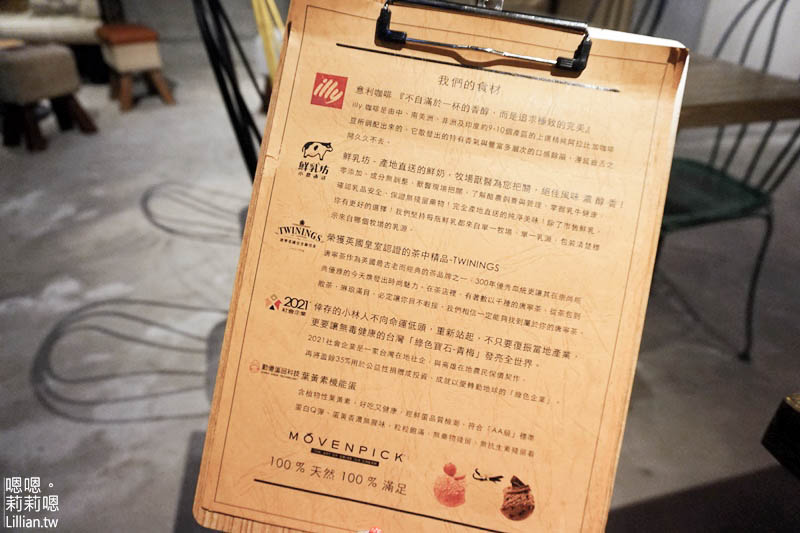 我們的食材
illy
意利咖啡『不自滿於一杯的香醇，而是追求極致的完美』
illy 咖啡是由中、南美洲、非洲及印度約9-10個產區的上選精純阿拉比加咖啡
豆所調配出來的，它散發出的特有香氣與豐富多層次的口感餘韻，漫延齒舌之
間久久不去。
鮮乳坊
鮮乳坊 - 產地直送的鮮奶，牧場獸醫為您把關，絕佳風味 濃 醇 香！
零添加、成分無調整，獸醫現場把關，了解酪農飼養與管理，掌握乳牛健康，
確認乳品安全、保證無殘留藥物！完全產地直送的純淨美味！除了市售鮮乳，
你有更好的選擇！我們堅持每瓶鮮乳都來自單一牧場，單一乳源，包裝清楚標
示來自哪個牧場的乳源。
TWININGS
榮獲英國皇室認證的茶中精品-TWININGS
唐寧茶作為英國最古老而經典的茶品牌之一，300年優秀血統更讓其在崇尚經
典優雅的今天煥發出時尚魅力。在茶店裡，有著數以千種的唐寧茶，從茶包到
散茶，琳琅滿目，必定讓你目不暇接，我們相信一定能夠找到屬於你的唐寧茶。
2021
社會企業
倖存的小林人不向命運低頭，重新站起，不只要復振當地產業，
更要讓無毒健康的台灣「綠色寶石-青梅」發亮全世界。
2021社會企業是一家台灣在地社企，與南雄在地農民保價契作，
再將盈餘35%用於公益性捐贈或投資，成就以愛轉動地球的「綠色企業」。
動優蛋品科技
葉黃素機能蛋
含植物性葉黃素，好吃又健康，經鮮蛋品質檢測，符合「AA級」標準
蛋白Q彈、蛋黃香濃無腥味，粒粒飽滿，無藥物殘留，無抗生素殘留着
MÖVENPICK
THE ART OF SWISS ICE CREAM
100 % 天然 100 % 滿足
嗯嗯。
莉莉嗯
Lillian.tw